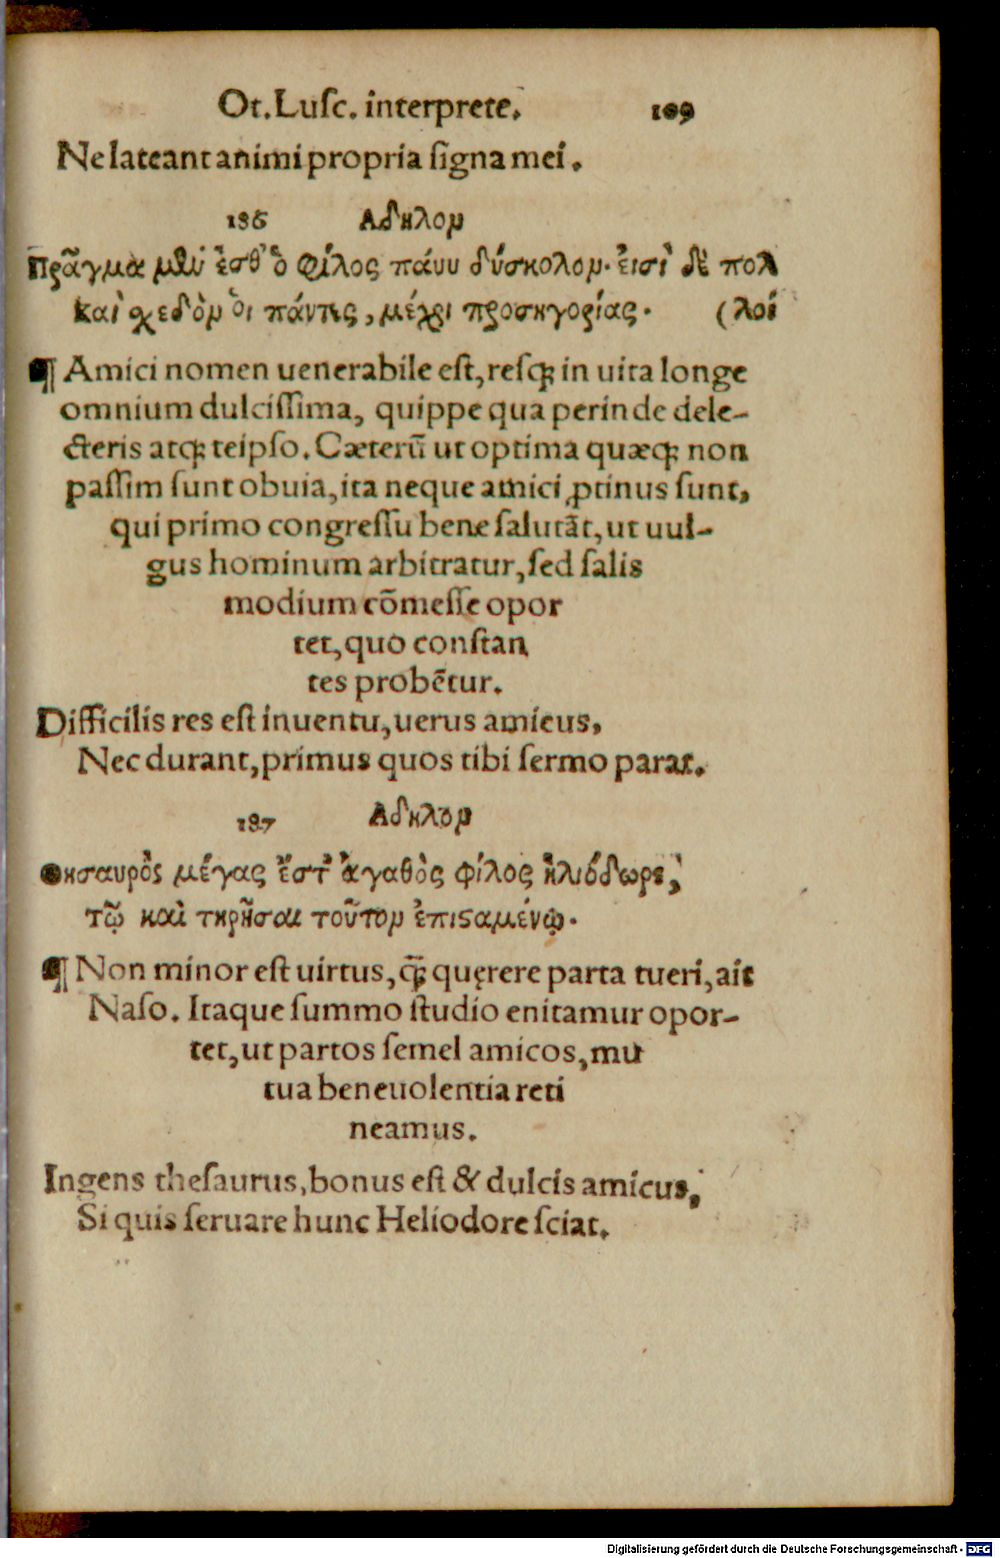 Ot. Luſc. interprete. 109
Ne lateant animi propria ſigna mei.
186 Αδηλον
Πρᾶγμα μὲν ἐσθ' ὁ φίλος πάνυ δύσκολον. εἰσὶ δὲ πολ
Καὶ σχεδὸν οἱ πάντες, μέχρι προσηγορίας. (λοί
¶ Amici nomen uenerabile eſt, reſcꝫ in uita longe
omnium dulciſſima, quippe qua perinde dele-
cteris atcꝫ teipſo. Cæterũ ut optima quæcꝫ non
paſſim ſunt obuia, ita neque amici ꝓtinus ſunt,
qui primo congreſſu bene ſalutãt, ut uul-
gus hominum arbitratur, ſed ſalis
modium cõmeſſe opor
tet, quo conſtan
tes probẽtur.
Difficilis res eſt inuentu, uerus amicus,
Nec durant, primus quos tibi ſermo parat.
187 Αδηλον
Θησαυρὸς μέγας ἔστ' ἀγαθὸς φίλος ἡλιόδωρε,
τῷ καὶ τηρῆσαι τοῦτον ἐπιϛαμένῳ.
¶ Non minor eſt uirtus, q̃ꝫ quęrere parta tueri, ait
Naſo. Itaque ſummo ſtudio enitamur opor-
tet, ut partos ſemel amicos, mu
tua beneuolentia reti
neamus.
Ingens theſaurus, bonus eſt & dulcis amicus,
Si quis ſeruare hunc Heliodore ſciat.
Digitalisierung gefördert durch die Deutsche Forschungsgemeinschaft - DFG